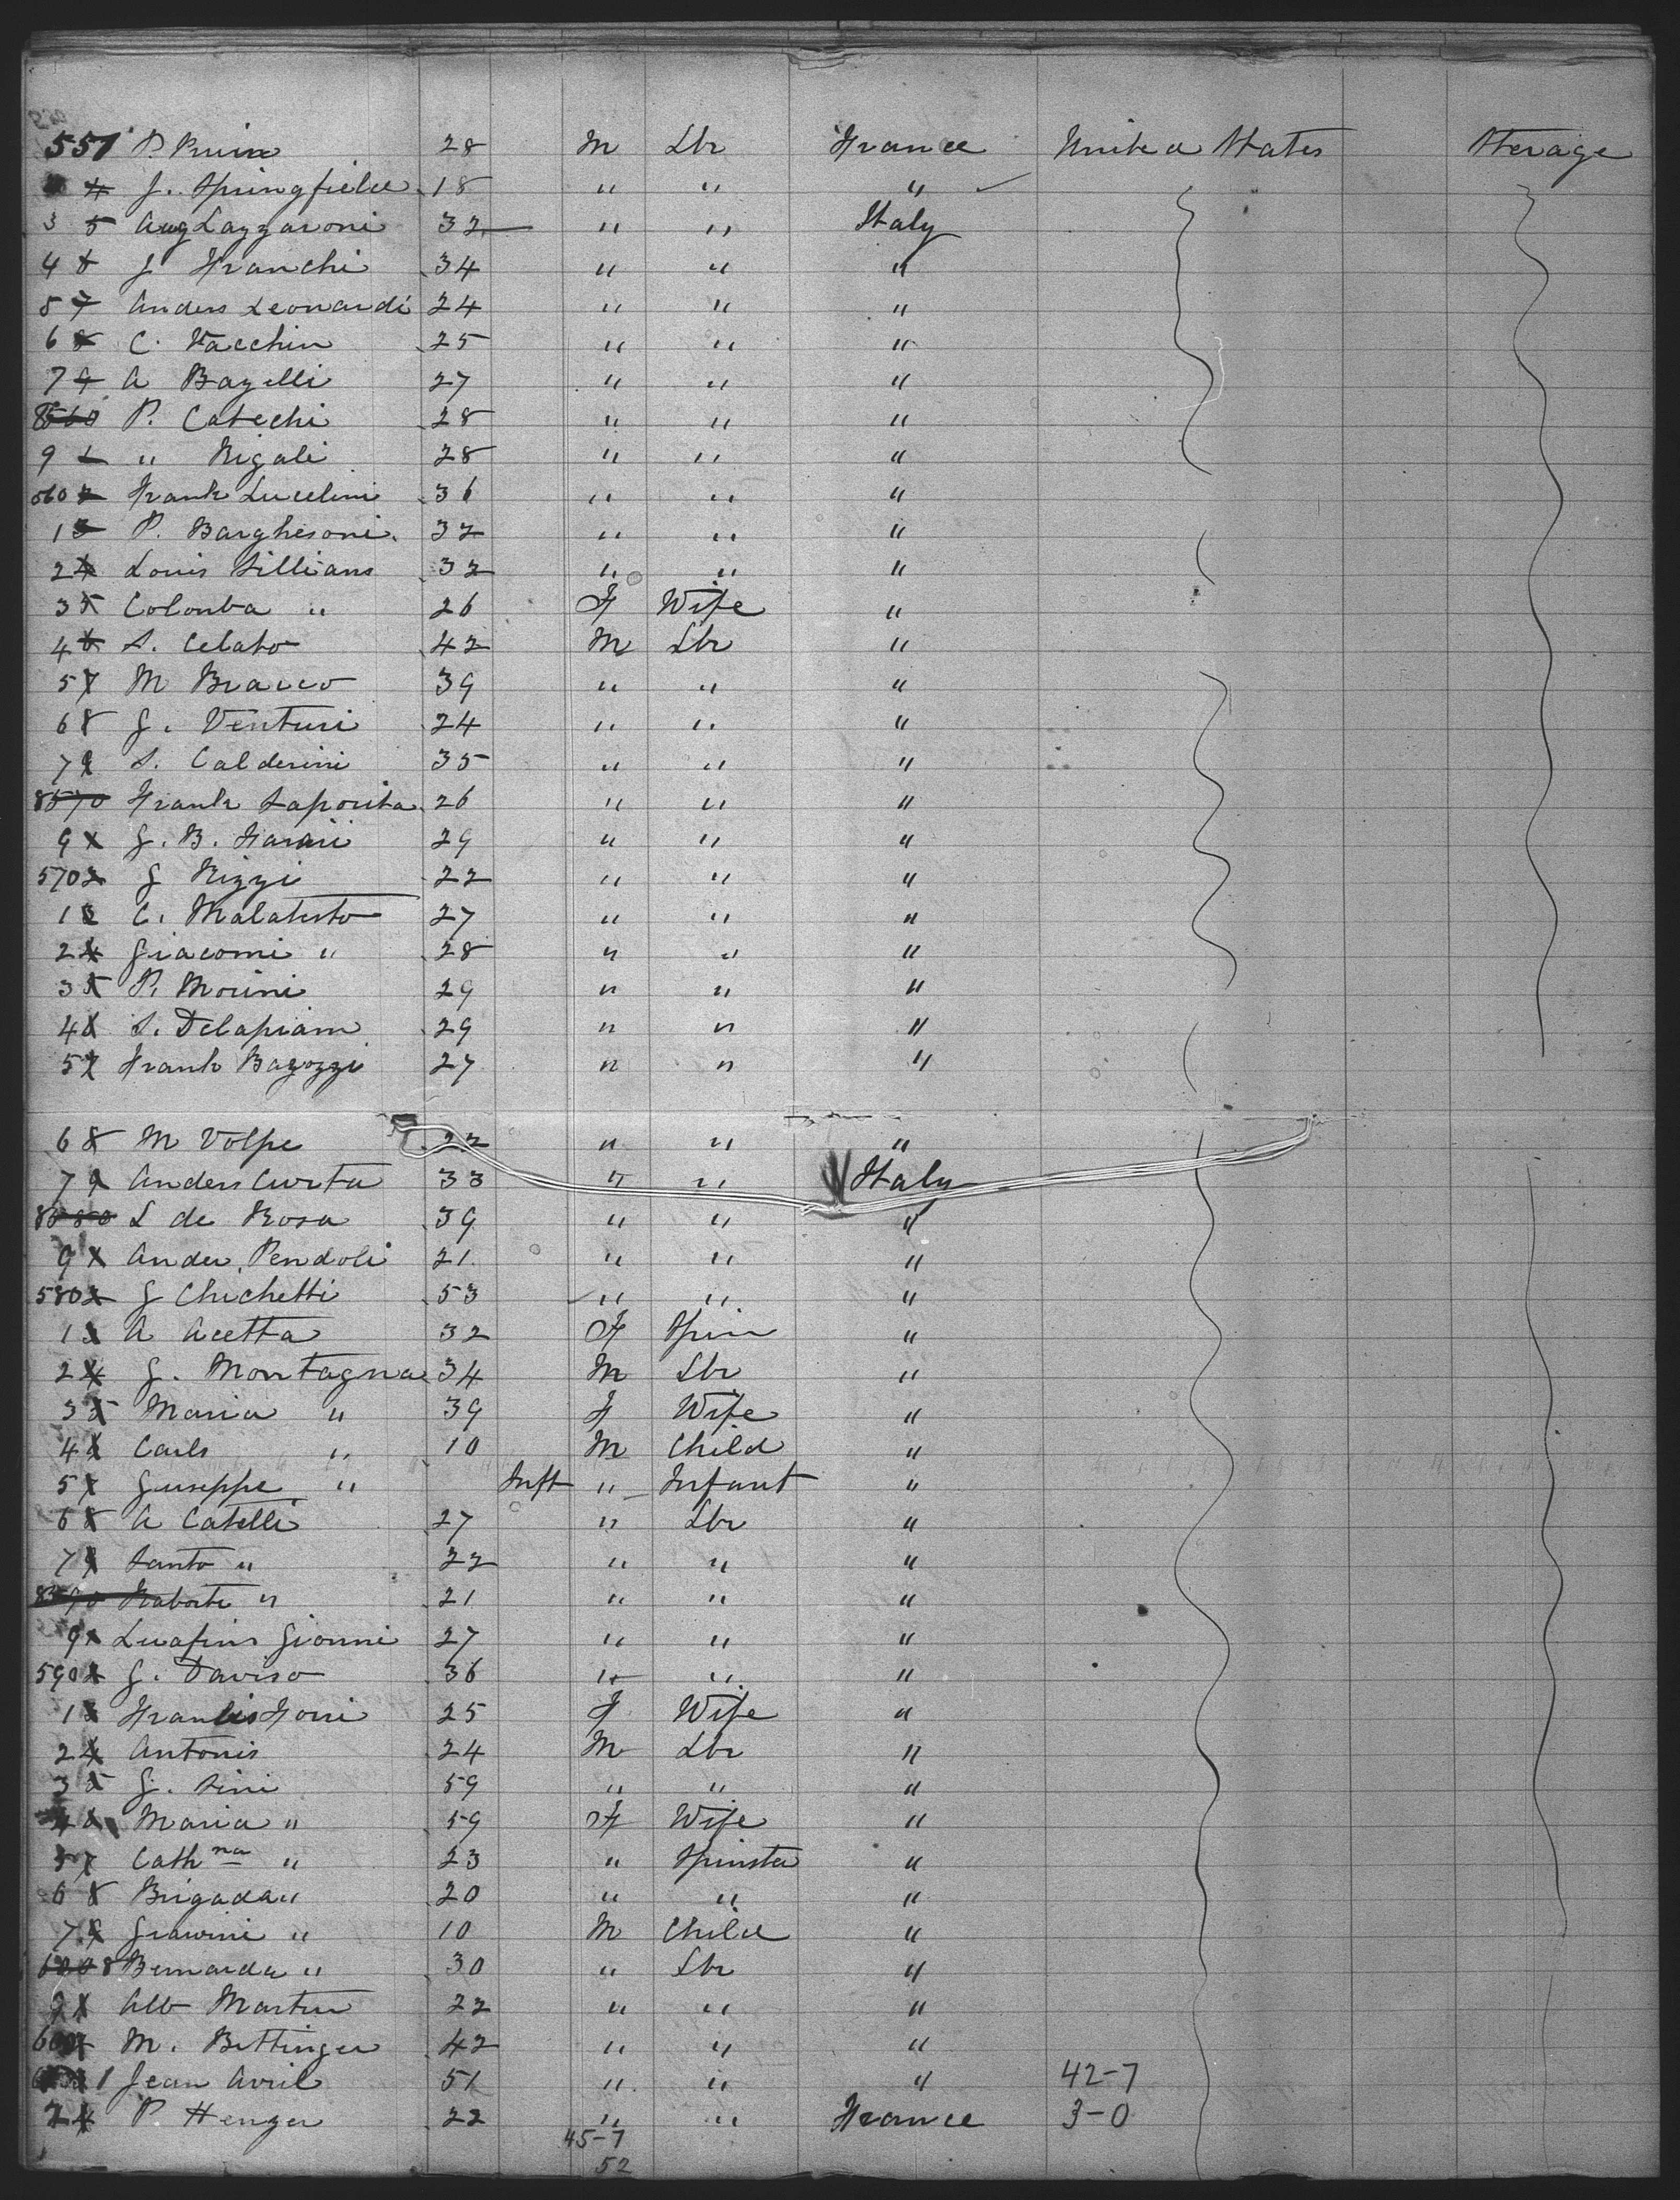 551 P. 28 M Lbr France United States Sterage
4 J. Springfield 18 " " "
3 5 Aug Lazzaroni 32 " " Italy
4 6 J Franchi 34 " " "
5 7 Anders Leonardi 24 " " "
6 8 C. Vacchin 25 " " "
7 9 A Bazelli 27 " " "
8 560 P. Catechi 28 " " "
9 1 " Rigali 28 " " "
560 2 Frank Lucelini 36 " " "
1 3 P. Barghesoni 32 " " "
2 4 Louis Sillians 32 " " "
3 5 Colomba " 26 F Wife "
4 6 S. Celato 42 M Lbr "
5 7 M Bracco 39 " " "
6 8 G. Venturi 24 " " "
7 9 S. Calderini 35 " " "
8 570 Frank Saporita 26 " " "
9 1 G. B. 29 " " "
570 2 G Rizzi 22 " " "
1 3 C. Malatesto 27 " " "
2 4 Giacomi " 28 " " "
3 5 P. Morini 29 " " "
4 6 S. Delapiam 29 " " "
5 7 Frank Bagozzi 27 " " "
6 8 M Volpe 22 " " "
7 9 Anders Curta 33 " " Italy
8 580 L de Rosa 39 " " "
9 1 Ander Pendoli 21 " " "
580 2 G Chichetti 53 " " "
1 3 A Acetta 32 F Spin "
2 4 G. Montagna 34 M Lbr "
3 5 Maria " 39 F Wife "
4 6 Carls " 10 M Child "
5 7 Guseppe " Inft " Infant "
6 8 A Catelli 27 " Lbr "
7 9 Santo " 22 " " "
8 590 " 21 " " "
9 1 Gionni 27 " " "
590 2 G. Daviso 36 " " "
1 3 25 F Wife "
2 4 Antonis 24 M Lbr "
3 5 G. Sini 59 " " "
4 6 Maria " 59 F Wife "
5 7 Cathna " 23 " Spinster "
6 8 Brigada " 20 " " "
7 9 " 10 M Child "
8 Bernarda " 30 " Lbr "
9 1 Alb Martin 22 " " "
600 M. Bettinger 42 " " "
1 Jean Avril 51 " " " 42-7
2 4 P. Henger 22 " " France 3-0
45-7
52